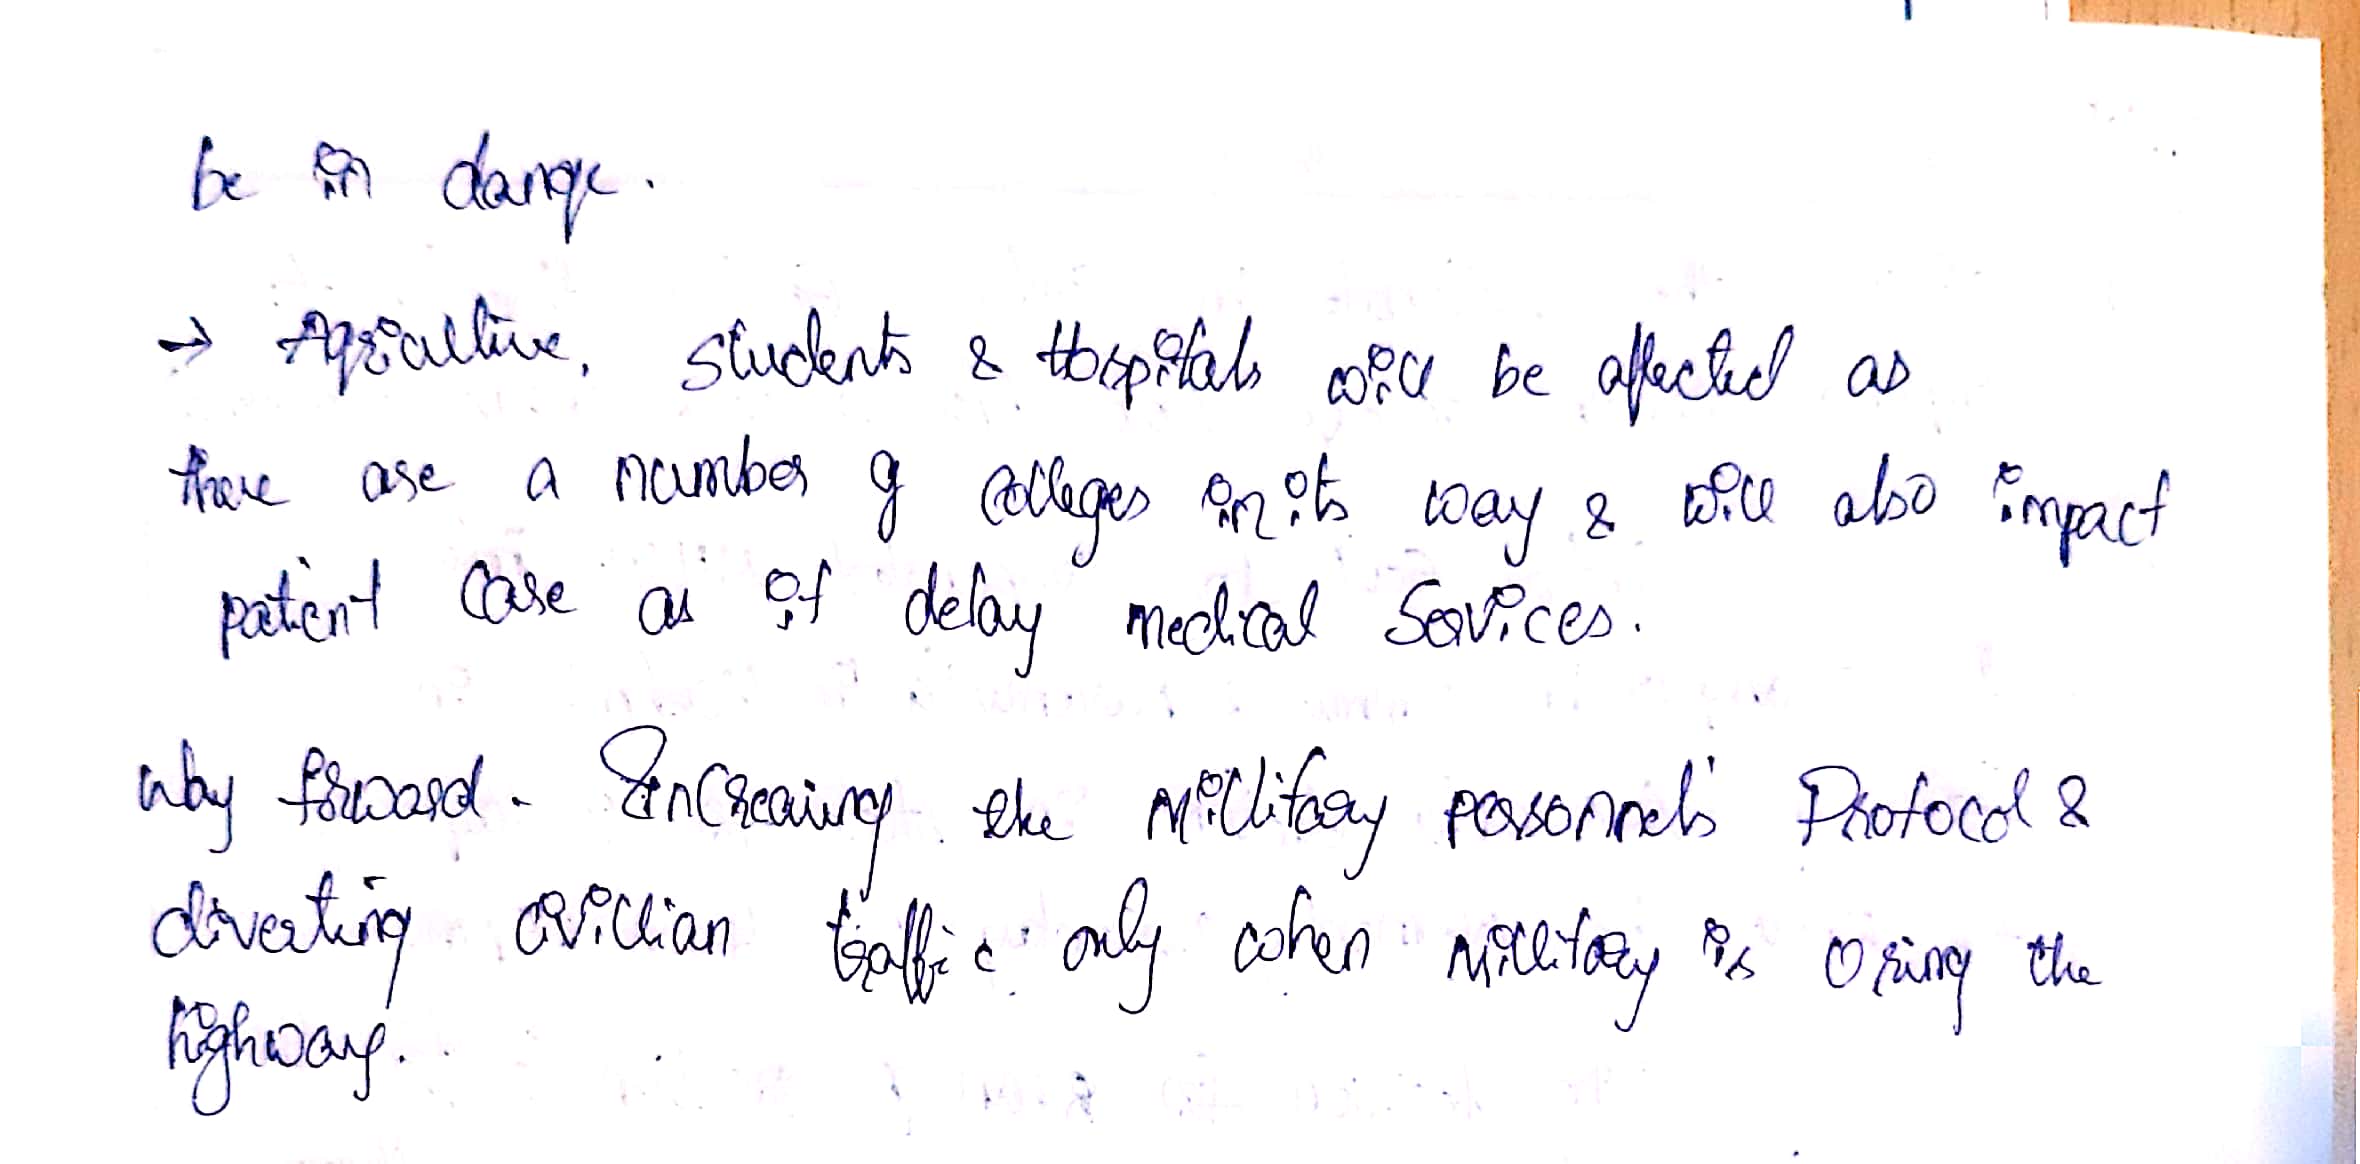 be in dange.
→ Agricultive, students & Hospitals will be affected as
there are a number of Colleges in its way & will also impact
patient Care as it delay medical Services.
Way forward - Increasing the Millitary personnel's Protocol &
diverting civillian traffic only when Millitary is using the
highway.